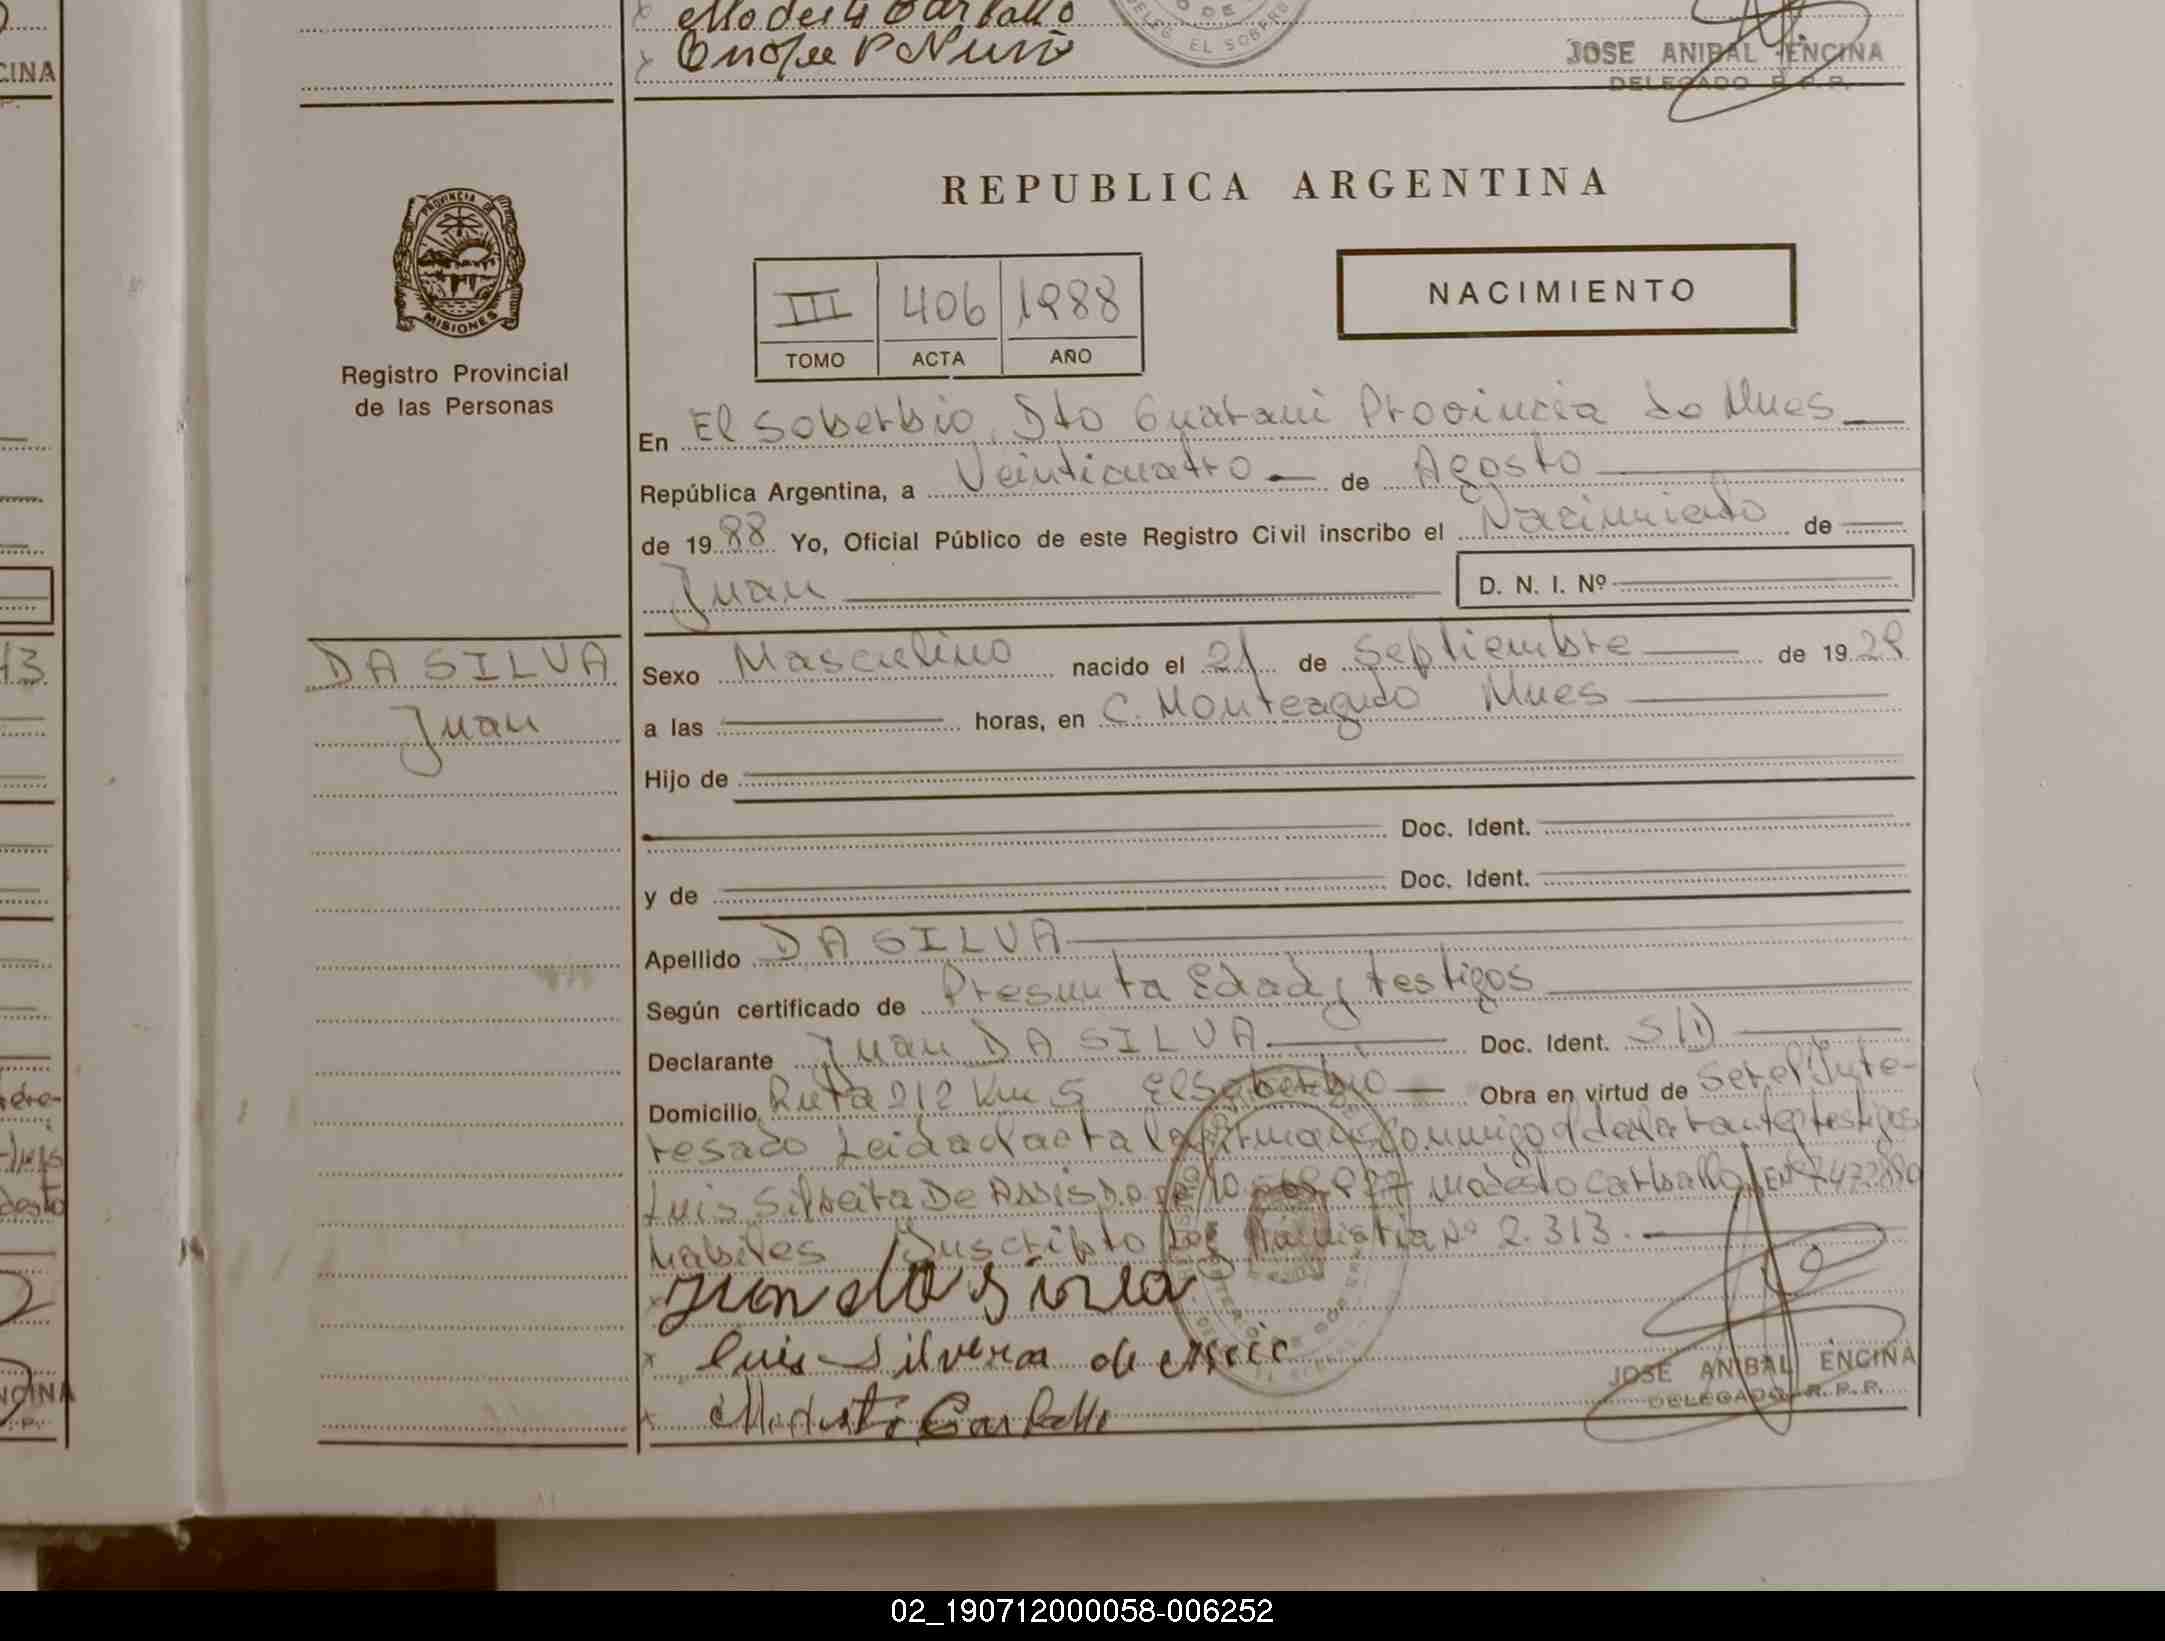 Modesto Carballo
JOSE ANIBAL ENCINA
DELEGADO R. P. R.
EL SOBERBIO
CINA
REPUBLICA ARGENTINA
PROVINCIA DE
MISIONES
Registro Provincial
de las Personas
III 406 1988
TOMO ACTA AÑO
NACIMIENTO
En El Soberbio, Dto Guarani Provincia de Mnes
República Argentina, a Veinticuatro de Agosto
de 1988 Yo, Oficial Público de este Registro Civil inscribo el Nacimiento de
Juan D. N. I. Nº
DA SILVA
Juan
Sexo Masculino nacido el 21 de Septiembre de 1929
a las horas, en C. Monteagudo Mnes
Hijo de
Doc. Ident.
y de Doc. Ident.
Apellido DA SILVA
Según certificado de Presunta Edad y testigos
Declarante Juan DA SILVA Doc. Ident. S/D
Domicilio Ruta 212 Km 5 El Soberbio Obra en virtud de ser el Inte-
resado Leida el acta la firman conmigo el declarante y testigos
Luis Silveira De Assis Modesto Carballo
habiles Inscripto Ley Amnistia Nº 2.313.
Juan da silva
Luis Silvera de Assis
Modesto Carballo
JOSE ANIBAL ENCINA
DELEGADO R. P. R.
02_190712000058-006252